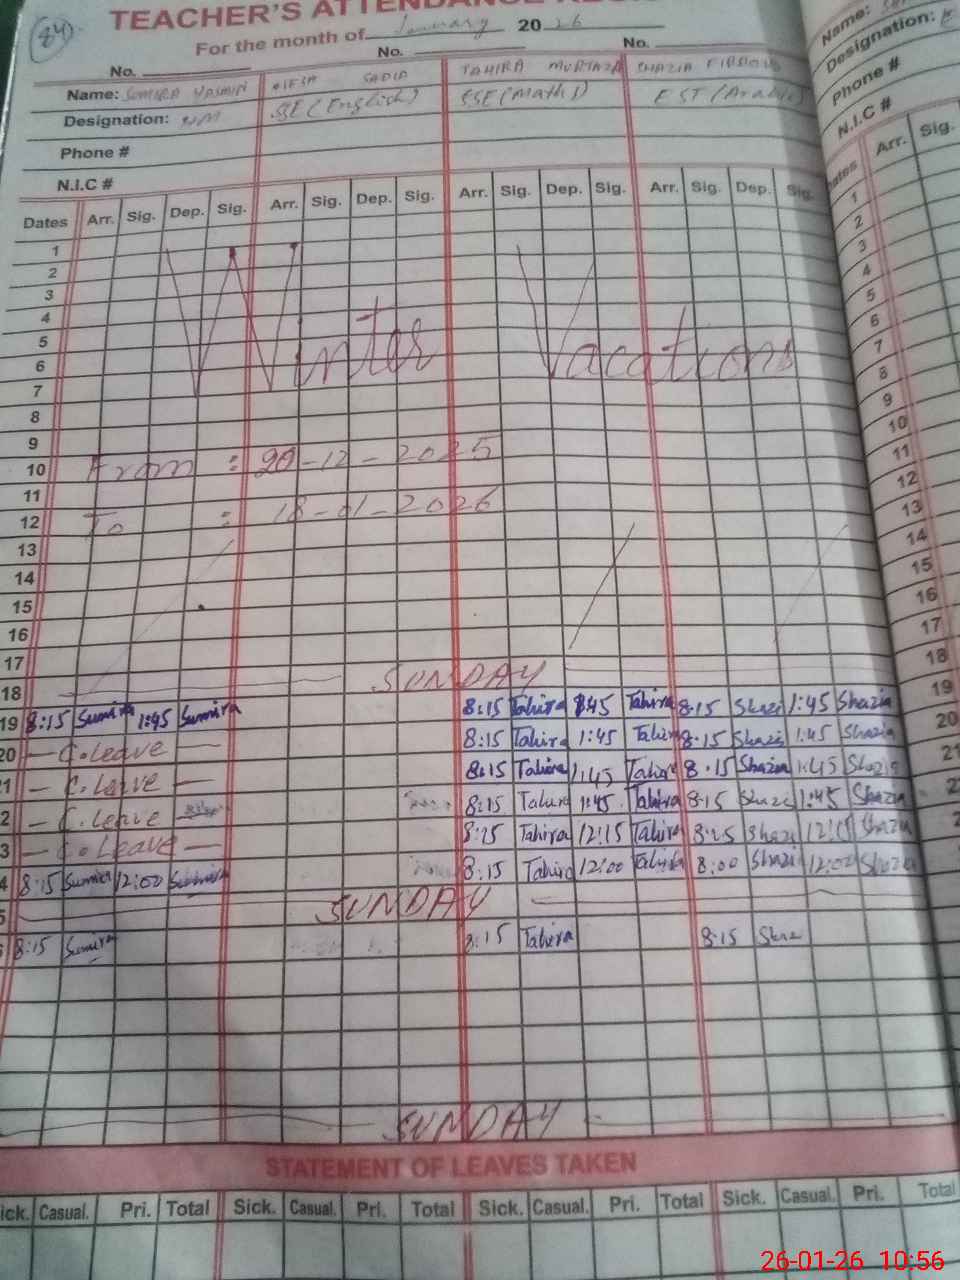 84
TEACHER'S ATTENDANCE
For the month of January 2026
No. No. No.
Name: SUMIRA YASMIN SADIA TAHIRA MURTAZA SHAZIA FIRDOUS
Designation: SSE (English) SSE (Maths) EST (Arabic)
Phone #
N.I.C #
Dates Arr. Sig. Dep. Sig. Arr. Sig. Dep. Sig. Arr. Sig. Dep. Sig. Arr. Sig. Dep. Sig.
1
2
3
4
5
6 Winter Vacations
7
8
9
10 From : 20-12-2025
11
12 To : 18-01-2026
13
14
15
16
17
18 SUNDAY
19 8:15 Sumira 1:45 Sumira 8:15 Tahira 1:45 Tahira 8:15 Shazi 1:45 Shazia
20 — C.leave — 8:15 Tahira 1:45 Tahir 8:15 Shazia 1:45 Shazia
1 — C.leave — 8:15 Tahira 1:45 Tahira 8:15 Shazia 1:45 Shazia
2 — C.leave — 8:15 Tahira 1:45 Tahira 8:15 Shazi 1:45 Shazia
3 — C.Leave — 8:15 Tahira 12:15 Tahira 8:15 Shazi 12:15 Shazia
4 8:15 Sumira 12:00 Sumira 8:15 Tahira 12:00 Tahira 8:00 Shazi 12:00 Shazia
5 SUNDAY
8:15 Sumira 8:15 Tahira 8:15 Shazi
SUNDAY
STATEMENT OF LEAVES TAKEN
Sick. Casual. Pri. Total Sick. Casual. Pri. Total Sick. Casual. Pri. Total Sick. Casual. Pri. Total
Name:
Designation:
Phone #
N.I.C #
Arr. Sig.
1
2
3
4
5
6
7
8
9
10
11
12
13
14
15
16
17
18
19
20
21
26-01-26 10:56